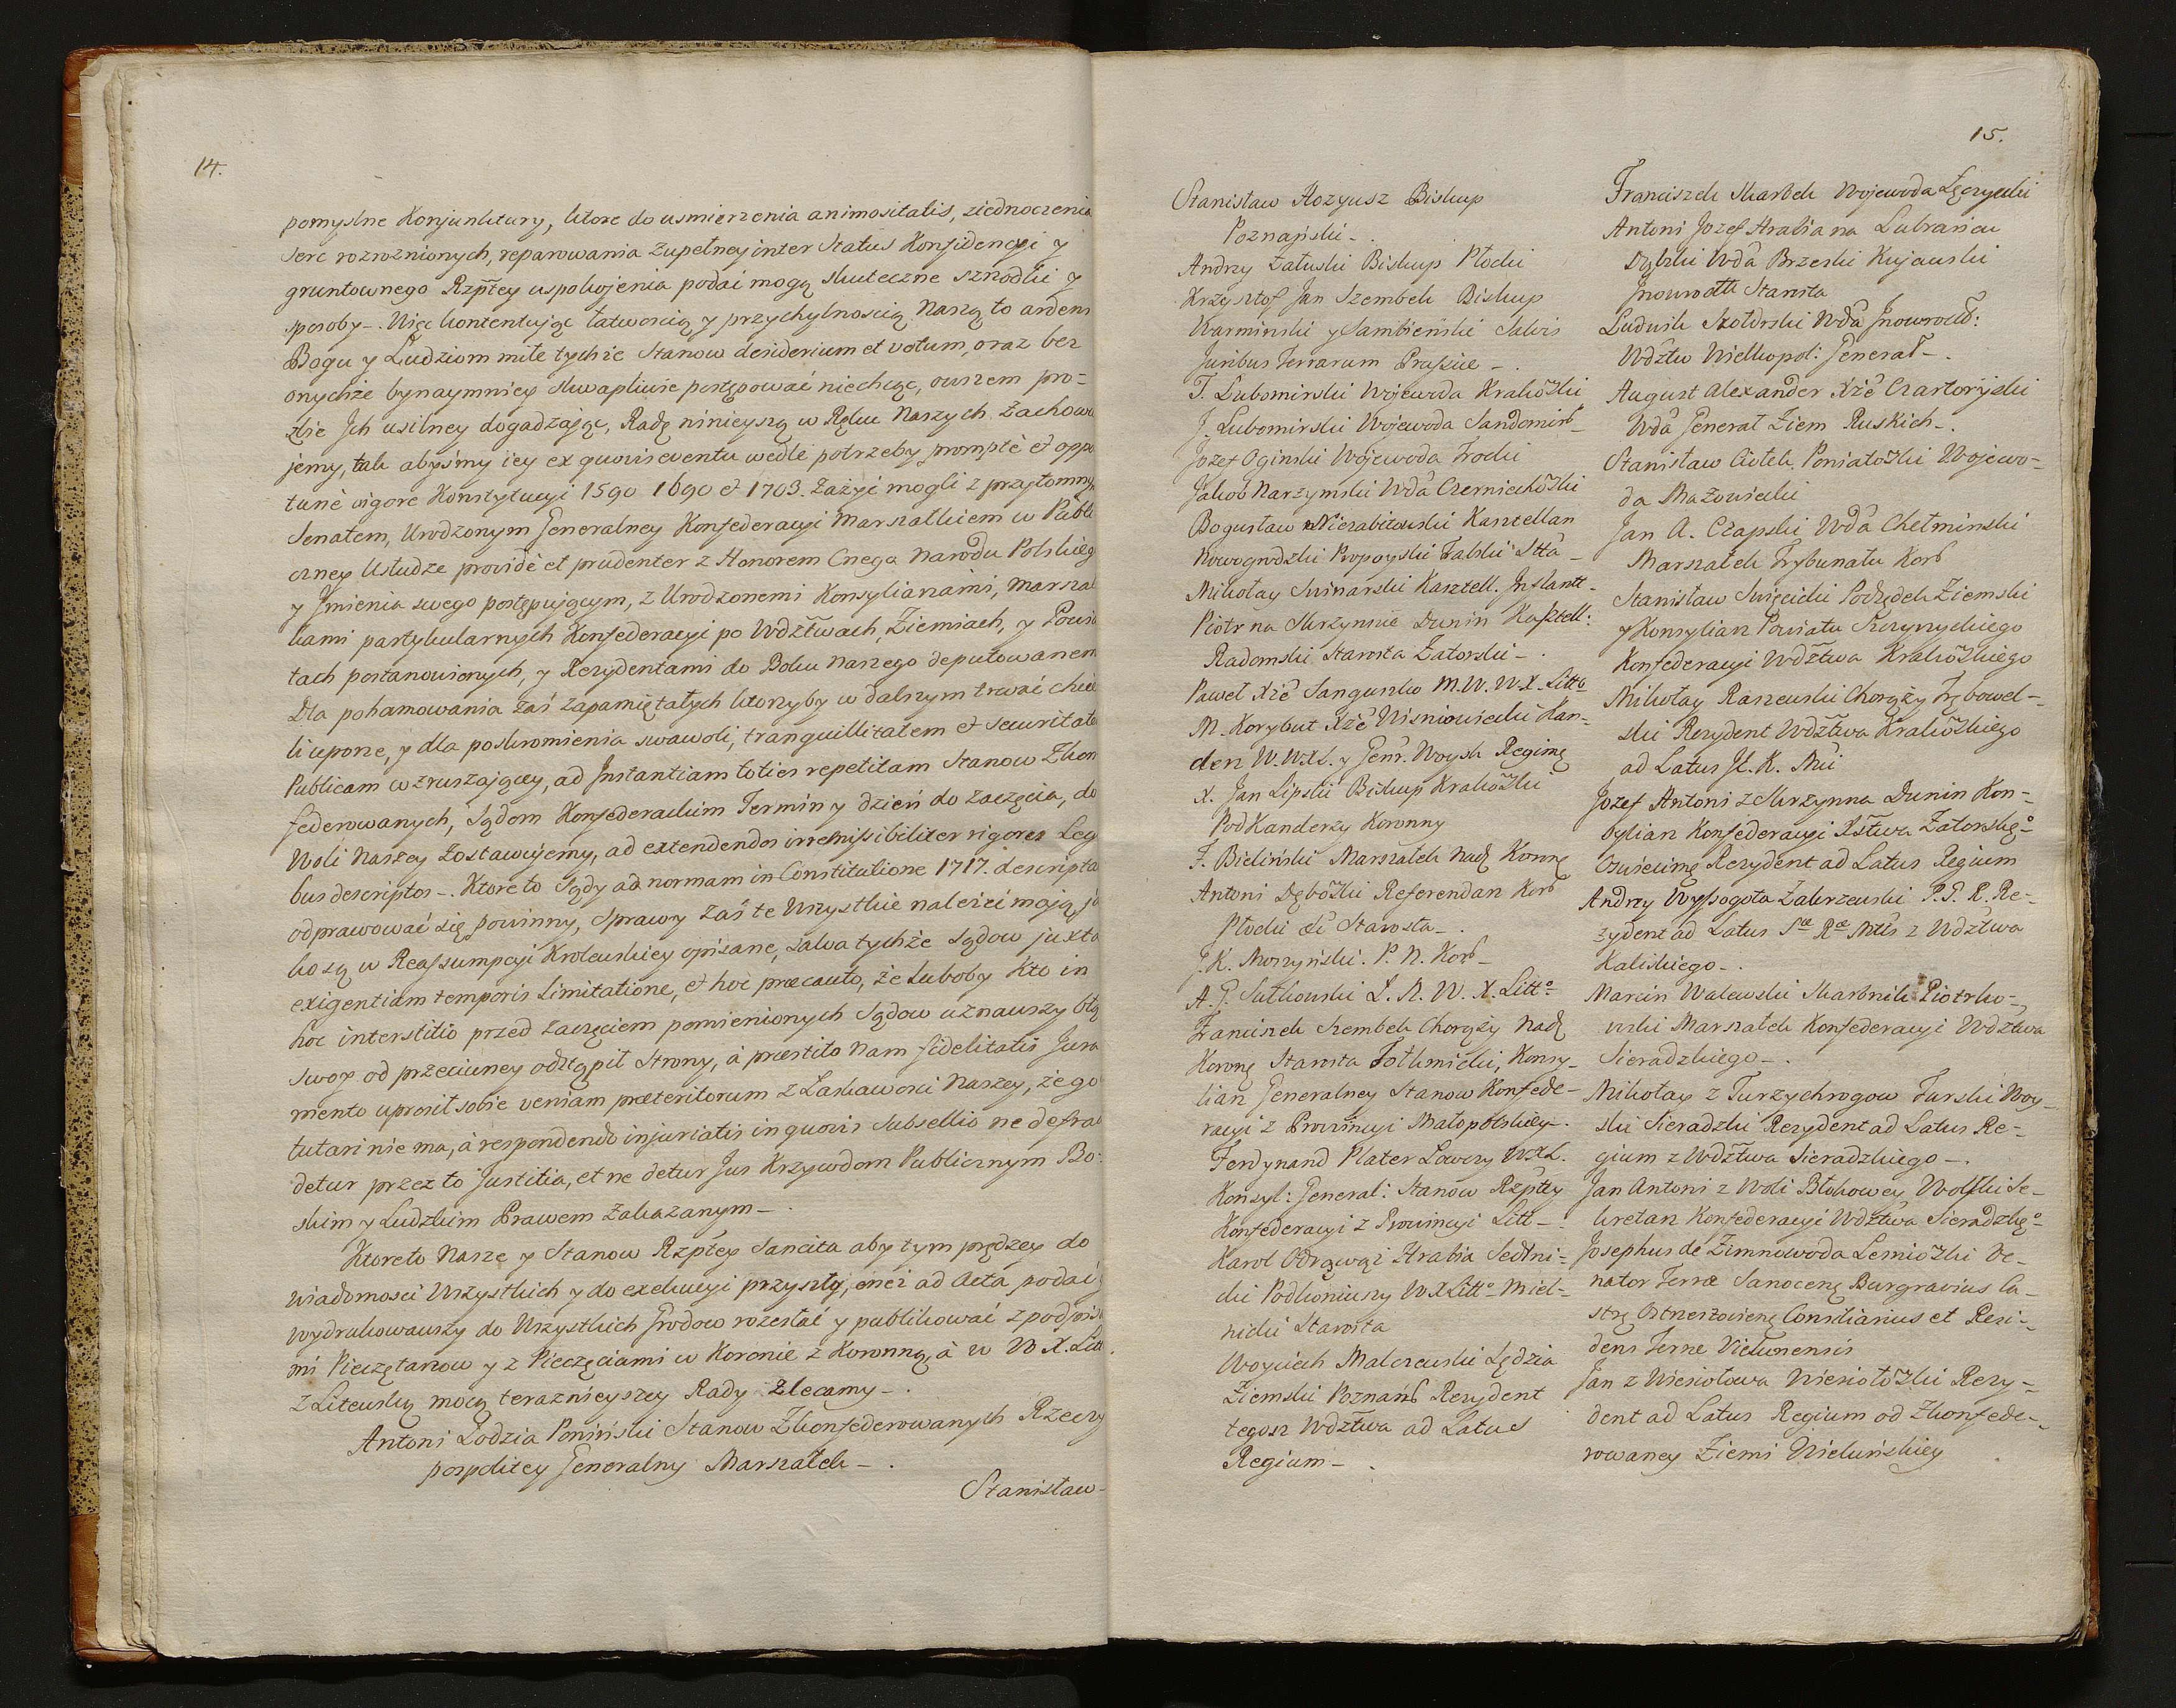 14.
pomyslne Konjunktury, ktore do usmierzenia animositatis, ziednoczenia
serc rozroznionych, reparowania zupełney inter Status Konfidencyi y
gruntownego Rzptey uspokojenia podać mogą skuteczne szrodki y
sposoby_. Więc kontentując łatwoscią y przychylnoscią Naszą to ardens
Bogu y Ludziom miłe tychże Stanow desiderium et votum, oraz bez
onychże bynaymniey skwapliwie postępować niechcąc, owszem pro=
zbie Jch usilney dogadzając, Radę ninieyszą w Ręku Naszych zachowu
jemy, tak abyśmy iey ex quovis eventu wedle potrzeby promptè et oppo
tunè vigore Konstytucyi 1590 1690 et 1703. Zażyć mogli z przytomnym
Senatem, Urodzonym Generalney Konfederacyi Marszałkiem w Publi
czney Usłudze providè et prudenter z Honorem Cnego Narodu Polskieg
y Jmienia swego postępującym, z Urodzonemi Konsyliarzami, Marszał
kami partykularnych Konfederacyi po Wdztwach, Ziemiach, y Powia
tach postanowionych, y Rezydentami do Boku Naszego deputowanem
Dla pohamowania zaś zapamiętałych ktorzyby w dalszym trwać chcie
li uporze, y dla poskromienia swawoli, tranquillitatem et Securitate
Publicam wzruszaiącey, ad Jnstantiam toties repetitam Stanow Zkon
federowanych, Sądom Konfederackim Termin y dzień do zaczęcia, do
Woli Naszey zostawujemy, ad extendendos irremissibiliter rigores Leg
bus descriptos_. Ktore to Sądy ad normam in Constitutione 1717. descripta
odprawować się powinny, Sprawy zaś te Wszystkie należeć mają, ja
ko są w Reassumpcyi Krolewskiey opisane, salva tychże Sądow juxta
exigentiam temporis Limitatione, et hoc præcauto, że Luboby Kto in
hoc interstitio przed zaczęciem pomienionych Sądow uznawszy błą
swoy od przeciwney odstąpił Strony, á præstito Nam fidelitatis Jura
mento uprosił sobie veniam præteritorum z Łaskawosci Naszey, że go
tutari nie ma, á respondendo injuriatis in quovis Subsellio ne defrau
detur przez to Justitia, et ne detur Jus Krzywdom Publicznym Bo=
skim y Ludzkim Prawem Zakazanym_.
Ktoreto Nasze y Stanow Rzptey Sancita aby tym prędzey do
wiadomosci Wszystkich y do exekucyi przyszły, onei ad Acta podać,
wydrukowawszy do Wszystkich Grodow rozesłać y publikować z podpisa
mi Pieczętarzow y z Pieczęciami w Koronie z Koronną, à w W X. Litt
z Litewską mocą teraznieyszey Rady Zlecamy_.
Antoni Łodzia Poniński Stanow Zkonfederowanych Rzeczy
pospolitey Generalny Marszałek_.
Stanisław
15.
Stanisław Hozyusz Biskup
Poznański_.
Andrzy Załuski Biskup Płocki
Krzysztof Jan Szembek Biskup
Warminski y Sambieński Salvis
Juribus Terrarum Prussiæ_.
T. Lubomirski Wojewoda Krakowski
J. Lubomirski Wojewoda Sandomir
Jozef Oginski Wojewoda Trocki
Jakob Narzymski Wda Czerniechowski
Bogusław Niezabitowski Kasztellan
Nowogrodzki Propoyski Stta_
Mikołay Swinarski Kasztell. Jnflantt_
Piotr na Skrzynnie Dunin Kasztell:
Radomski Starosta Zatorski_.
Paweł Xżê Sanguszko M. W. W. X. Litto
M. Korybut Xżê Wisniowiecki Kan=
clerz W. W. X L. y Genr. Woysk Regimę
X. Jan Lipski Biskup Krakowski
PodKanclerzy Koronny
F. Bieliński Marszałek Nadę Koronę
Antoni Dębowski Referendarz Kor
Płocki &c Starosta_.
J. K. Morzyński. P. N. Kor_
A. J. Sułkowski L. N. W. X. Litto
Franciszek Szembek Chorąży Nadę
Koronę Starosta Tołkmicki, Konsy_
liarz Generalney Stanow Konfede=
racyi z Prowincyi Małopolskiey.
Ferdynand Plater Łowczy W.X.L.
Konsyl: General: Stanow Rzptey
Konfederacyi z Prowincyi Litt_
Karol Odrowąż Hrabia Sedlni=
cki Podkoniuszy W X Litto Miel=
nicki Starosta
Woyciech Malczewski Sędzia
Ziemski Poznańs Rezydent
tegosz Wdztwa ad Latus
Regium_.
Franciszek Skarbek Wojewoda Łęczycki
Antoni Jozef Hrabia na Lubrańcu
Dąbski Wda Brzeski Kujawski
Jnowrocłł Starosta
Ludwik Szołdrski Wda Jnowrocł:
Wdztw Wielkopol: Generał_.
August Alexander Xżê Czartoryski
Wda Generał Ziem Ruskich_.
Stanisław Ciołek Poniatowski Wojewo=
da Mazowiecki
Jan A. Czapski Wda Chełminski
Marszałek Trybunału Kor
Stanisław Swięcicki Podsędek Ziemski
y Konsyliarz Powiatu Szczyrzyckiego
Konfederacyi Wdztwa Krakowskiego
Mikołay Raszewski Chorąży Trębowel=
ski Rezydent Wdztwa Krakowskiego
ad Latus J. K. Mći
Jozef Antoni z Skrzynna Dunin Kon=
sylian Konfederacyi Xstwa Zatorskgo
Oswiecimę Rezydent ad Latus Regium
Andrzy Wyssogota Zakrzewski P. P. K. Re=
zydent ad Latus Sæ Ræ Mtis z Wdztwa
Kaliskiego_.
Marcin Walewski Skarbnik Piotrko=
wski Marszałek Konfederacyi Wdztwa
Sieradzkiego_.
Mikołay z Turzychrogow Turski Woy_
ski Sieradzki Rezydent ad Latus Re=
gium z Wdztwa Sieradzkiego_.
Jan Antoni z Woli Błokowey Wolski Se_
kretarz Konfederacyi Wdztwa Sieradzkgo
Josephus de Zimnowoda Lemiowski Ve_
nator Terræ Sanocenę Burgravius Ca_
strę Consiliarius et Resi_
dens Terræ Vielunensis
Jan z Wiesiołowa Wiesiołowski Rezy=
dent ad Latus Regium od Zkonfede=
rowaney Ziemi Wieluńskiey